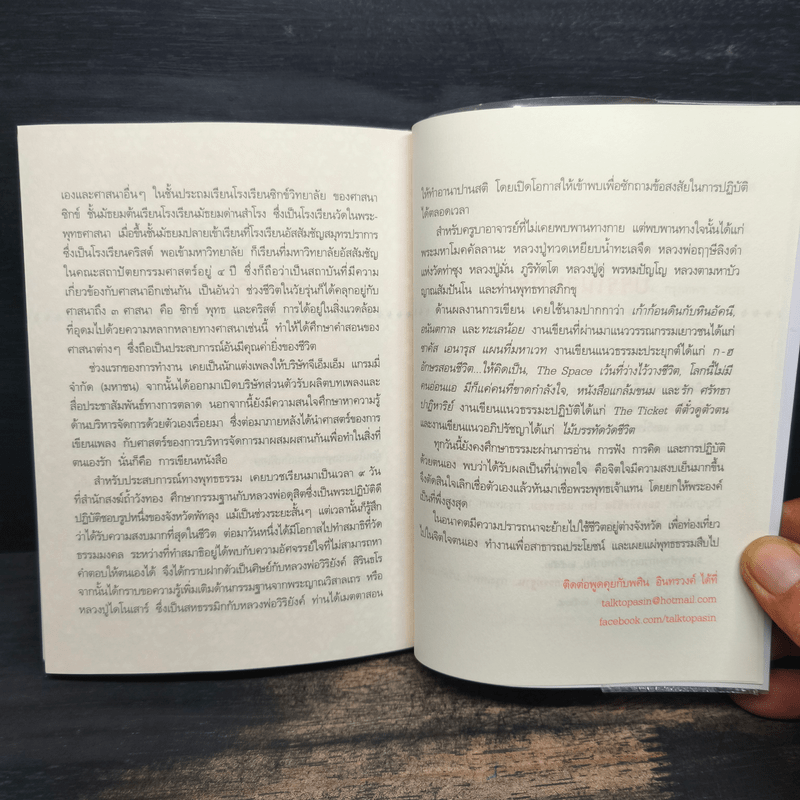 เองและศาสนาอื่นๆ ในชั้นประถมเรียนโรงเรียนซิกข์วิทยาลัย ของศาสนา
ซิกข์ ชั้นมัธยมต้นเรียนโรงเรียนมัธยมด่านสำโรง ซึ่งเป็นโรงเรียนวัดในพระ-
พุทธศาสนา เมื่อขึ้นชั้นมัธยมปลายเข้าเรียนที่โรงเรียนอัสสัมชัญสมุทรปราการ
ซึ่งเป็นโรงเรียนคริสต์ พอเข้ามหาวิทยาลัย ก็เรียนที่มหาวิทยาลัยอัสสัมชัญ
ในคณะสถาปัตยกรรมศาสตร์อยู่ ๔ ปี ซึ่งก็ถือว่าเป็นสถาบันที่มีความ
เกี่ยวข้องกับศาสนาอีกเช่นกัน เป็นอันว่า ช่วงชีวิตในวัยรุ่นก็ได้คลุกอยู่กับ
ศาสนาถึง ๓ ศาสนา คือ ซิกข์ พุทธ และคริสต์ การได้อยู่ในสิ่งแวดล้อม
ที่อุดมไปด้วยความหลากหลายทางศาสนาเช่นนี้ ทำให้ได้ศึกษาคำสอนของ
ศาสนาต่างๆ ซึ่งถือเป็นประสบการณ์อันมีคุณค่ายิ่งของชีวิต
ช่วงแรกของการทำงาน เคยเป็นนักแต่งเพลงให้บริษัทจีเอ็มเอ็ม แกรมมี่
จำกัด (มหาชน) จากนั้นได้ออกมาเปิดบริษัทส่วนตัวรับผลิตบทเพลงและ
สื่อประชาสัมพันธ์ทางการตลาด นอกจากนี้ยังมีความสนใจศึกษาหาความรู้
ด้านบริหารจัดการด้วยตัวเองเรื่อยมา ซึ่งต่อมาภายหลังได้นำศาสตร์ของการ
เขียนเพลง กับศาสตร์ของการบริหารจัดการมาผสมผสานกันเพื่อทำในสิ่งที่
ตนเองรัก นั่นก็คือ การเขียนหนังสือ
สำหรับประสบการณ์ทางพุทธธรรม เคยบวชเรียนมาเป็นเวลา ๙ วัน
ที่สำนักสงฆ์ถ้ำวังทอง ศึกษากรรมฐานกับหลวงพ่อดุสิตซึ่งเป็นพระปฏิบัติดี
ปฏิบัติชอบรูปหนึ่งของจังหวัดพัทลุง แม้เป็นช่วงระยะสั้นๆ แต่เวลานั้นก็รู้สึก
ว่าได้รับความสงบมากที่สุดในชีวิต ต่อมาวันหนึ่งได้มีโอกาสไปทำสมาธิที่วัด
ธรรมมงคล ระหว่างที่ทำสมาธิอยู่ได้พบกับความอัศจรรย์ใจที่ไม่สามารถหา
คำตอบให้ตนเองได้ จึงได้กราบฝากตัวเป็นศิษย์กับหลวงพ่อวิริยังค์ สิรินธโร
จากนั้นได้กราบขอความรู้เพิ่มเติมด้านกรรมฐานจากพระญาณวิสาลเถร หรือ
หลวงปู่ไดโนเสาร์ ซึ่งเป็นสหธรรมิกกับหลวงพ่อวิริยังค์ ท่านได้เมตตาสอน
ให้ทำอานาปานสติ โดยเปิดโอกาสให้เข้าพบเพื่อซักถามข้อสงสัยในการปฏิบัติ
ได้ตลอดเวลา
สำหรับครูบาอาจารย์ที่ไม่เคยพบพานทางกาย แต่พบพานทางใจนั้นได้แก่
พระมหาโมคคัลลานะ หลวงปู่ทวดเหยียบน้ำทะเลจืด หลวงพ่อฤๅษีลิงดำ
แห่งวัดท่าซุง หลวงปู่มั่น ภูริทัตโต หลวงปู่ดู่ พรหมปัญโญ หลวงตามหาบัว
ญาณสัมปันโน และท่านพุทธทาสภิกขุ
ด้านผลงานการเขียน เคยใช้นามปากกาว่า เก้าก้อนดินกับหินอัคนี,
อนัตตาล และทะเลน้อย งานเขียนที่ผ่านมาแนววรรณกรรมเยาวชนได้แก่
ชาคัส เอนารุส แผนที่มหาเวท งานเขียนแนวธรรมะประยุกต์ได้แก่ ก-ฮ
อักษรสอนชีวิต...ให้คิดเป็น, The Space เว้นที่ว่างไว้วางชีวิต, โลกนี้ไม่มี
คนอ่อนแอ มีก็แค่คนที่ขาดกำลังใจ, หนังสือแกล้มขนม และรัก ศรัทธา
ปาฏิหาริย์ งานเขียนแนวธรรมะปฏิบัติได้แก่ The Ticket ตีตั๋วดูตัวตน
และงานเขียนแนวอภิปรัชญาได้แก่ ไม้บรรทัดวัดชีวิต
ทุกวันนี้ยังคงศึกษาธรรมะผ่านการอ่าน การฟัง การคิด และการปฏิบัติ
ด้วยตนเอง พบว่าได้รับผลเป็นที่น่าพอใจ คือจิตใจมีความสงบเย็นมากขึ้น
จึงตัดสินใจเลิกเชื่อตัวเองแล้วหันมาเชื่อพระพุทธเจ้าแทน โดยยกให้พระองค์
เป็นที่พึ่งสูงสุด
ในอนาคตมีความปรารถนาจะย้ายไปใช้ชีวิตอยู่ต่างจังหวัด เพื่อท่องเที่ยว
ไปในจิตใจตนเอง ทำงานเพื่อสาธารณประโยชน์ และเผยแผ่พุทธธรรมสืบไป
ติดต่อพูดคุยกับพศิน อินทรวงค์ ได้ที่
talktopasin@hotmail.com
facebook.com/talktopasin